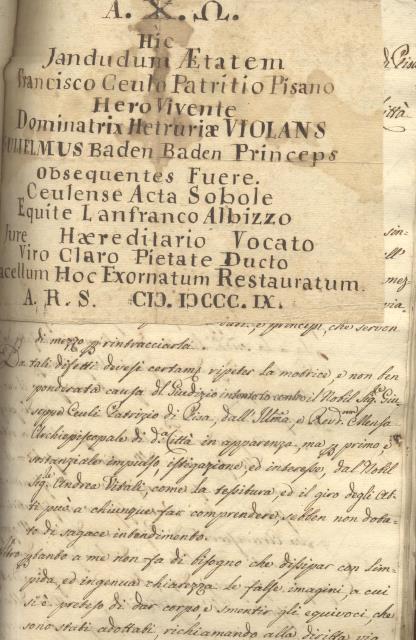 A. X. Ω.
Hic
Jandudum Ætatem
Francisco Ceulo Patritio Pisano
Hero Vivente
Dominatrix Hetruriæ VIOLANS
GULIELMUS Baden Baden Princeps
Obsequentes Fuere.
Ceulense Acta Sobole
Equite Lanfranco Albizzo
Jure Hæreditario Vocato
Viro Claro Pietate Ducto
acellum Hoc Exornatum Restauratum.
A. R. S. CIƆ. IƆCCC. IX.
principj, che servon
di mezzo p rintracciarla.
Da tali difetti devesi certamte ripeter la motrice, e non ben
ponderata causa del Giudizio intentato contro il Nobil Sigre Giu-
seppe Ceuli Patrizio di Pisa, dall' Illma, e Revdma Mensa
Archiepiscopale di da Città in apparenza, ma p primo, e
sostanziale impulso istigazione, ed interesse, dal Nobil
Sigr Andrea Vitali, come la tessitura, ed il giro degli At-
ti può a chiunque far comprendere, sebben non dota-
to di sagace intendimento.
ptanto a me non fa di bisogno che dissipar con lim-
pida, ed ingenua chiarezza le false imagini, a cui
si è preteso di dar corpo e smentir gli equivoci, che
sono stati adottati, richiamando alla diritta via